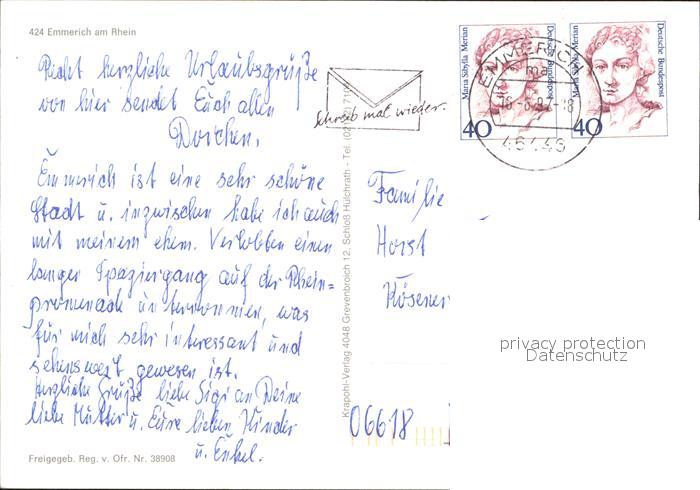 424 Emmerich am Rhein
Recht herzliche Urlaubsgrüße
von hier sendet Euch allen
Dorchen.
Emmerich ist eine sehr schöne
Stadt u. inzwischen habe ich auch
mit meinem ehem. Verlobten einen
langen Spaziergang auf der Rhein=
promenade unternommen, was
für mich sehr interessant und
sehenswert gewesen ist.
Herzliche Grüße liebe Sigi an Deine
liebe Mutter u. Eure lieben Kinder
u. Enkel.
Freigegeb. Reg. v. Ofr. Nr. 38908
Krapohl-Verlag 4048 Grevenbroich 12, Schloß Hülchrath - Tel.
Schreib mal wieder.
Maria Sibylla Merian
Deutsche Bundespost
40
Maria Sibylla Merian
Deutsche Bundespost
40
EMMERICH
Familie
Horst
Kösener
06618
privacy protection
Datenschutz